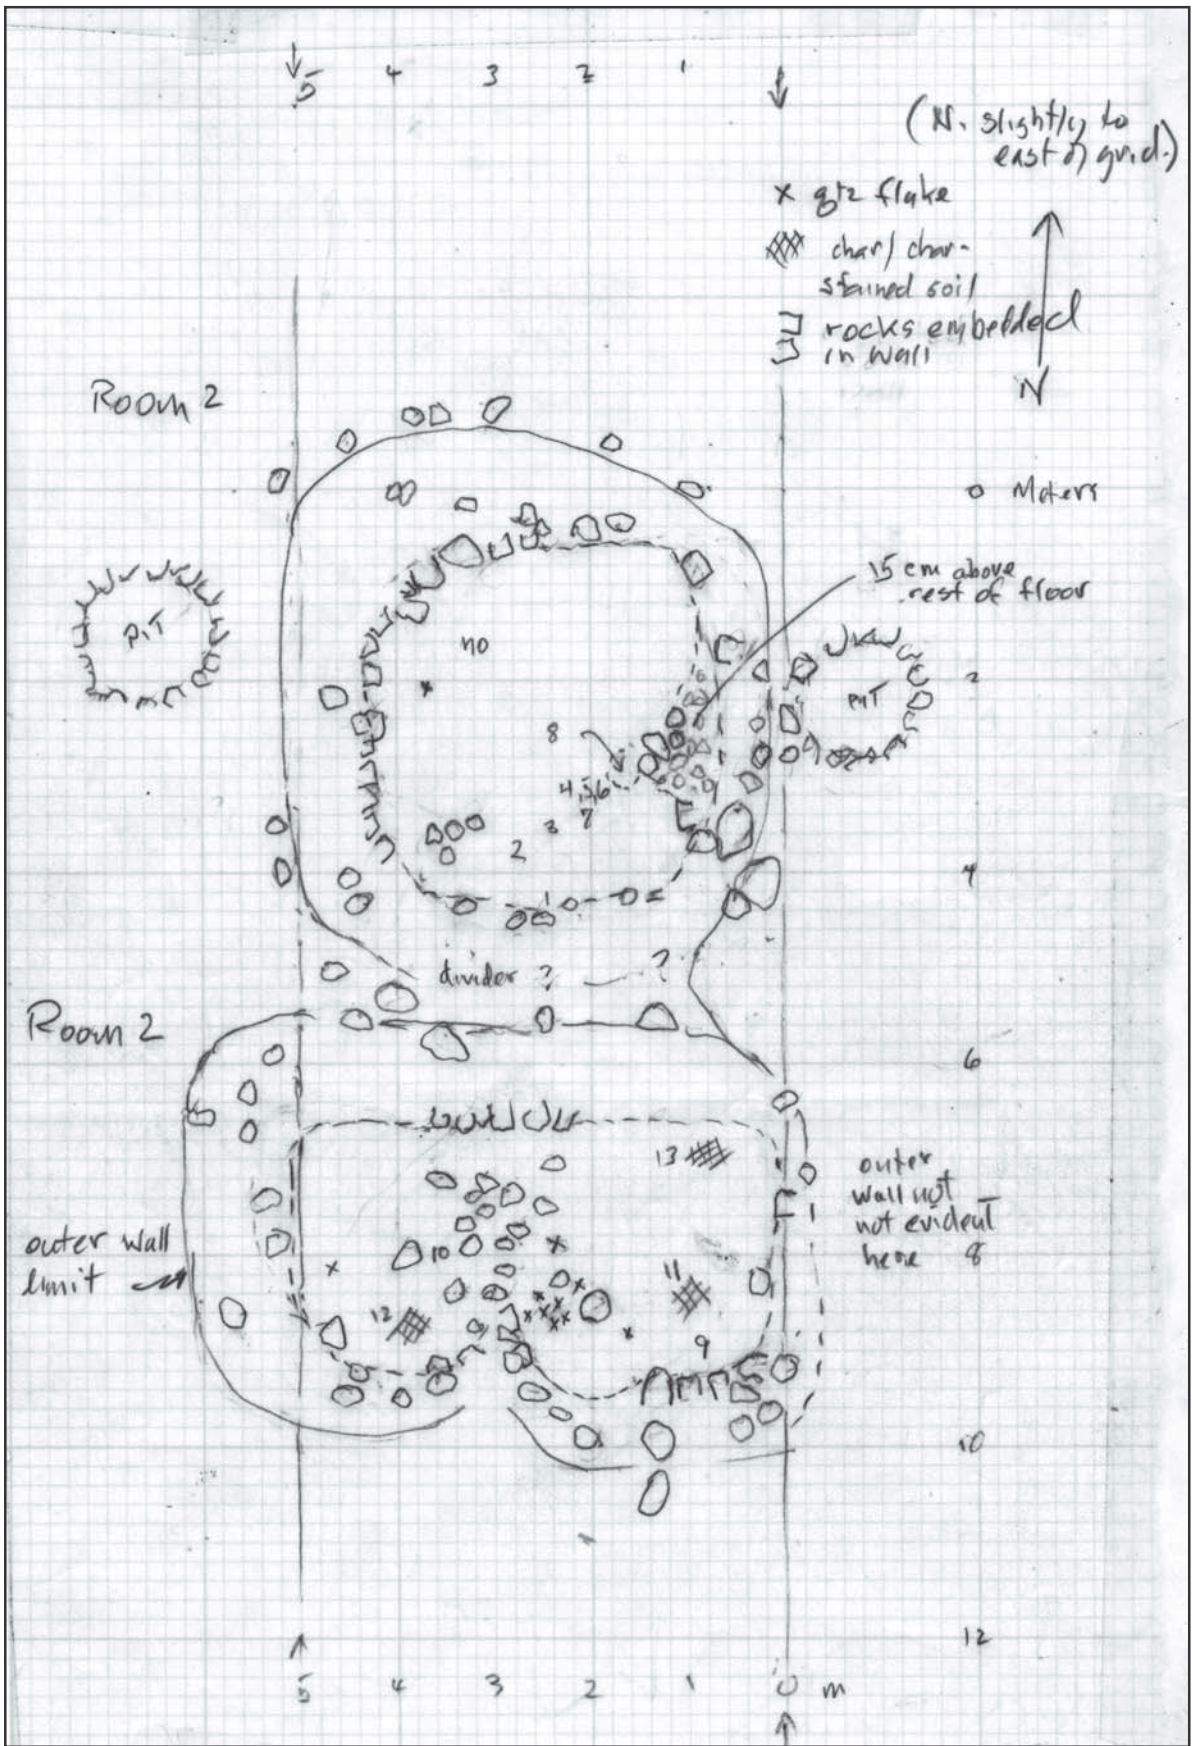 5 4 3 2 1
(N. slightly to
east of grid.)
x qtz flake
char/char-
stained soil
rocks embedded
in wall
N
Room 2
0 Meters
15 cm above
rest of floor
PIT
no
PIT
2
8
4,5,6
7
3
2
4
1
divider ? ?
Room 2
6
13
outer
wall not
not evident
here 8
outer wall
limit
10
11
12
9
10
12
5 4 3 2 1 0 m